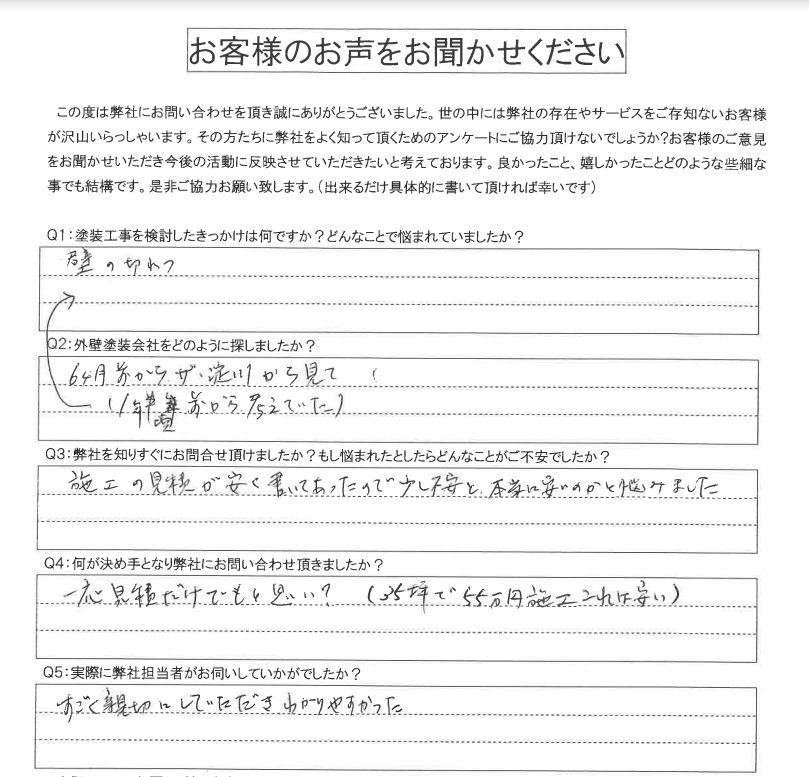 お客様のお声をお聞かせください
この度は弊社にお問い合わせを頂き誠にありがとうございました。世の中には弊社の存在やサービスをご存知ないお客様
が沢山いらっしゃいます。その方たちに弊社をよく知って頂くためのアンケートにご協力頂けないでしょうか?お客様のご意見
をお聞かせいただき今後の活動に反映させていただきたいと考えております。良かったこと、嬉しかったことどのような些細な
事でも結構です。是非ご協力お願い致します。(出来るだけ具体的に書いて頂ければ幸いです)
Q1:塗装工事を検討したきっかけは何ですか?どんなことで悩まれていましたか?
壁の切れつ
Q2:外壁塗装会社をどのように探しましたか?
6ヶ月前からザ・淀川から見て
(1年半頃前から考えていた)
Q3:弊社を知りすぐにお問合せ頂けましたか?もし悩まれたとしたらどんなことがご不安でしたか?
施工の見積が安く書いてあったので少し不安と、本当に安いのかと悩みました
Q4:何が決め手となり弊社にお問い合わせ頂きましたか?
一応見積だけでもと思い? (35坪で55万円施工これは安い)
Q5:実際に弊社担当者がお伺いしていかがでしたか?
すごく親切にしていただきわかりやすかった